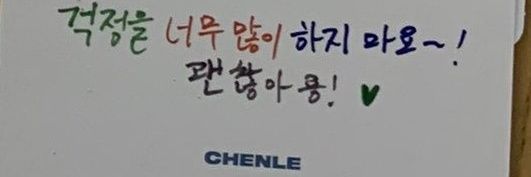 걱정을 너무 많이 하지 마요~!
괜찮아용! ♥
CHENLE